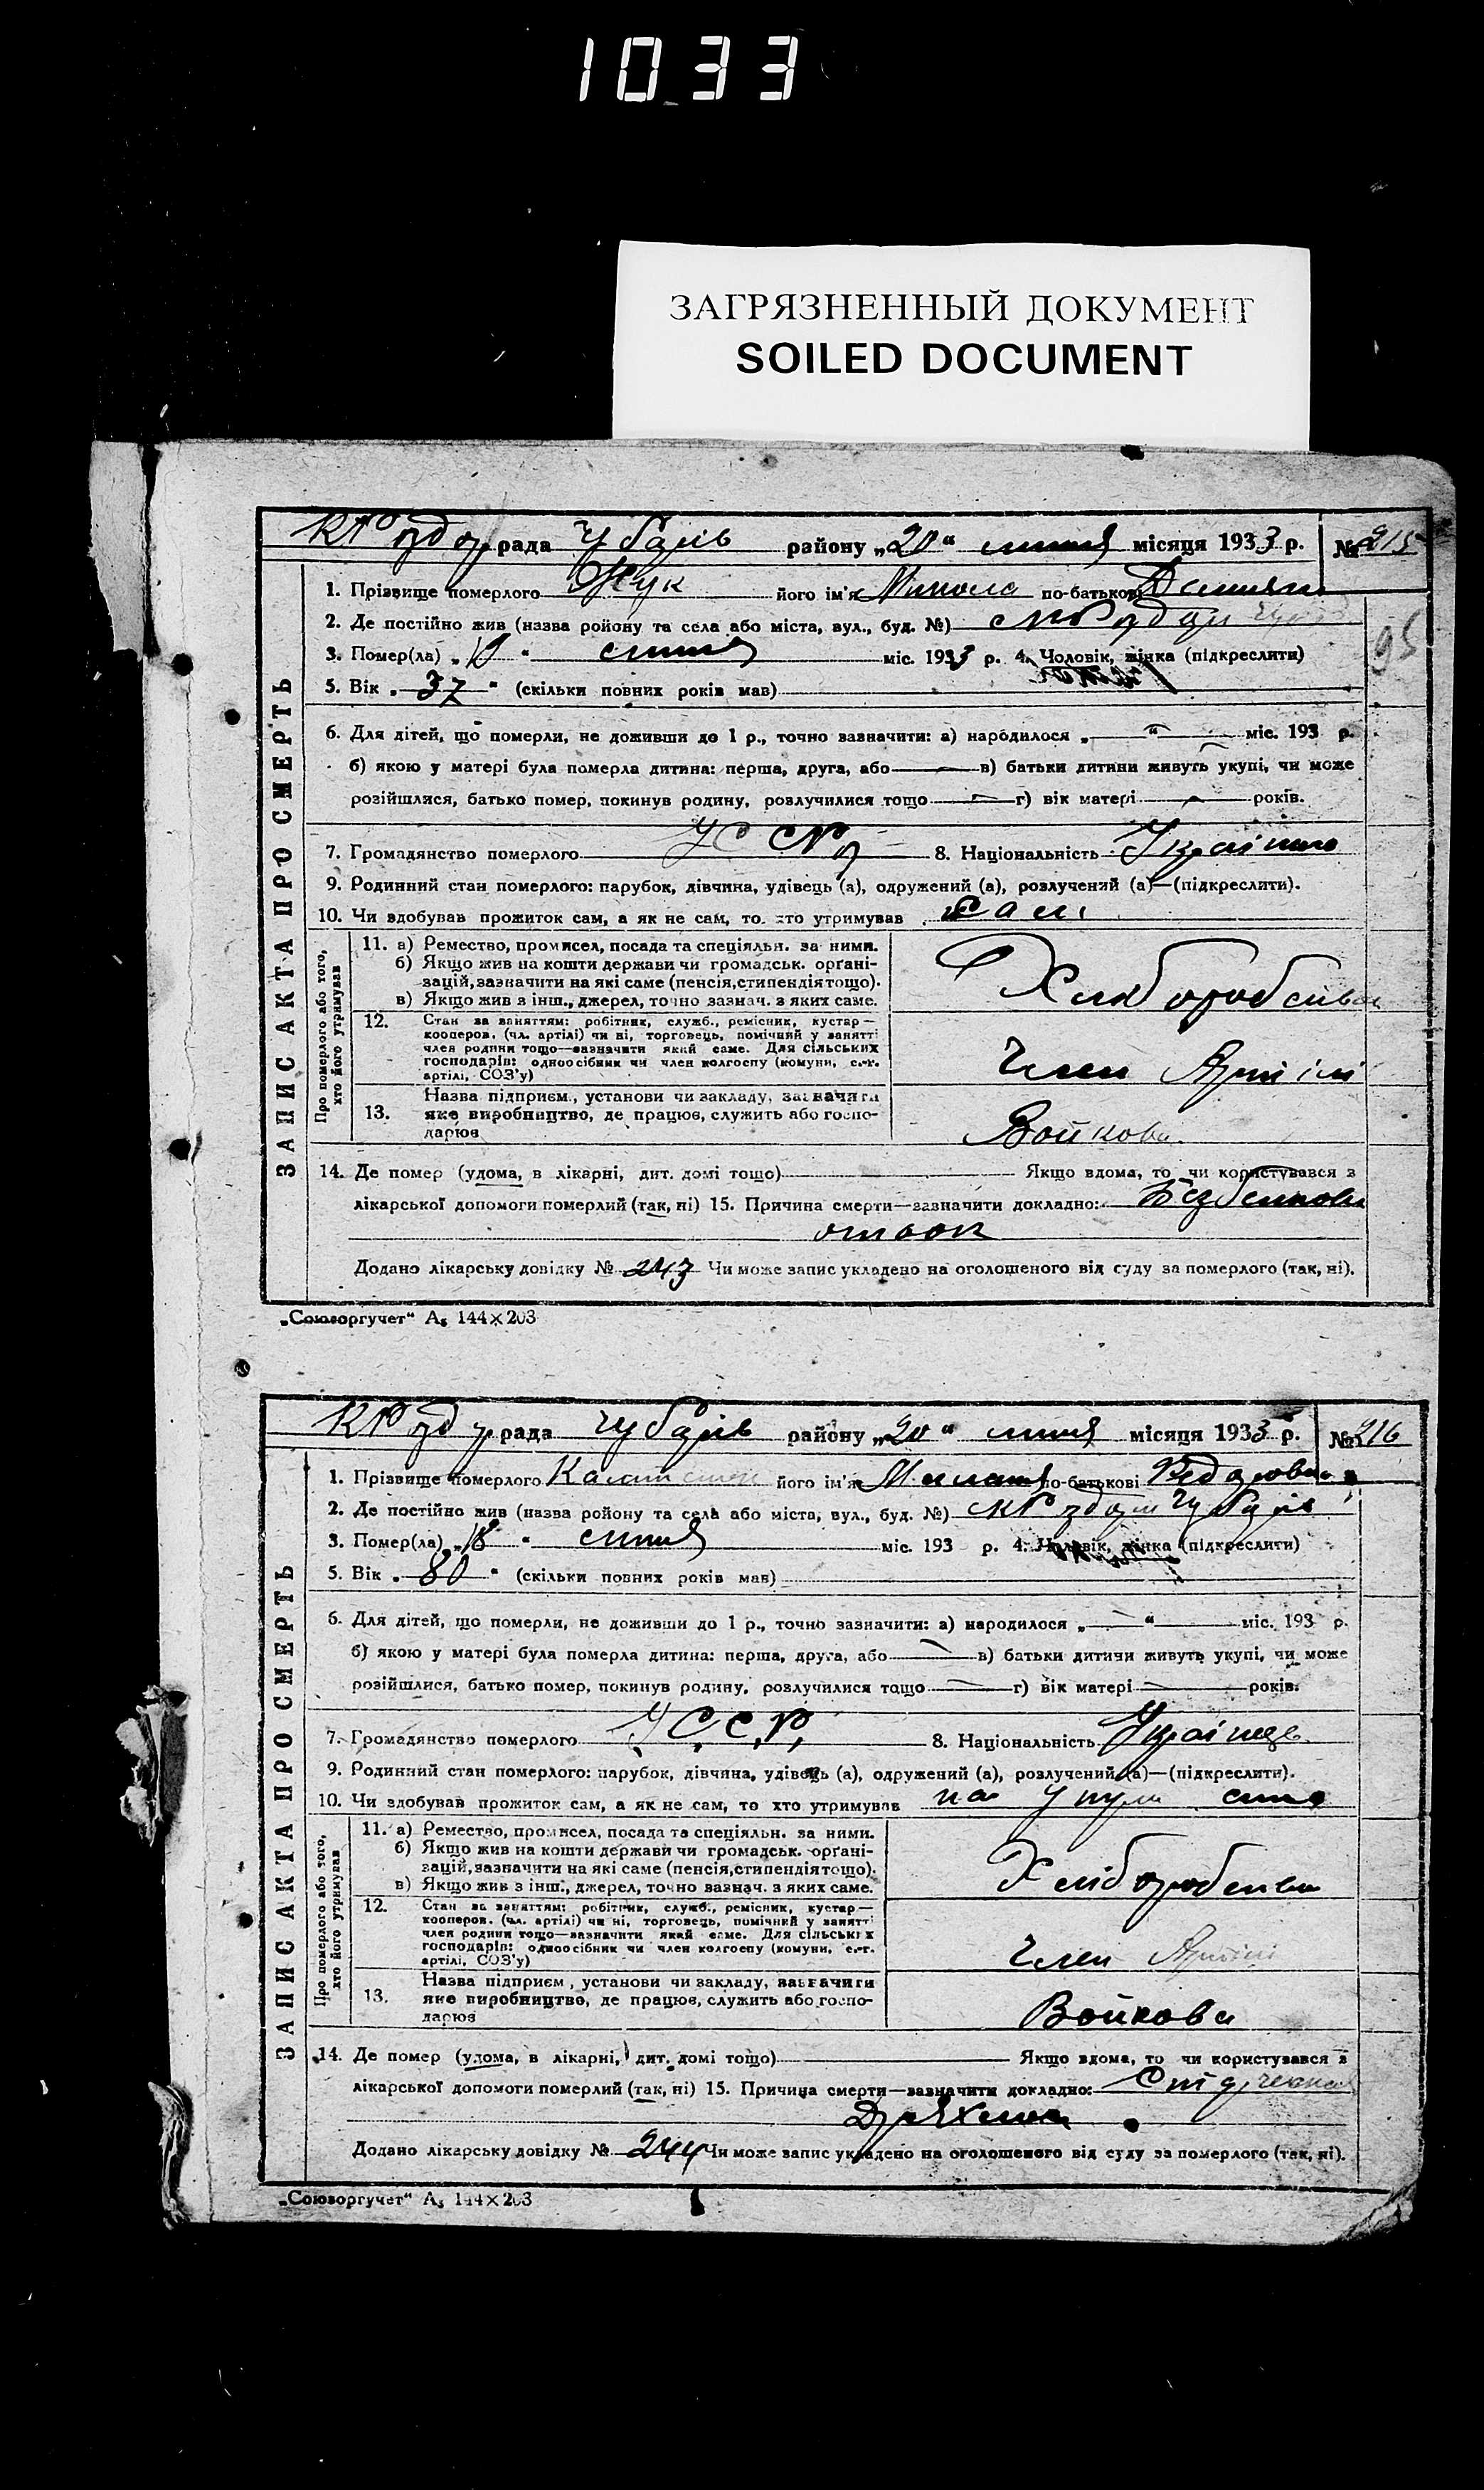 1033
ЗАГРЯЗНЕННЫЙ ДОКУМЕНТ
SOILED DOCUMENT
ЗАПИС АКТА ПРО СМЕРТЬ
рада Чубарів району „20“ липня місяця 1933 р. № 215
95
1. Прізвище померлого Жук його ім'я Микола по-батькові
2. Де постійно жив (назва ройону та села або міста, вул., буд. №)
3. Помер(ла) „ “ липня міс. 1933 р. 4. Чоловік, жінка (підкреслити)
5. Вік „37“ (скільки повних років мав)
6. Для дітей, що померли, не доживши до 1 р., точно зазначити: а) народилося „ — “ міс. 193 р.
б) якою у матері була померла дитина: перша, друга, або — в) батьки дитини живуть укупі, чи може
розійшлися, батько помер, покинув родину, розлучилися тощо — г) вік матері — років.
7. Громадянство померлого УССР 8. Національність
9. Родинний стан померлого: парубок, дівчина, удівець (а), одружений (а), розлучений (а)—(підкреслити).
10. Чи здобував прожиток сам, а як не сам, то хто утримував сам
Про померлого або того, хто його утримував
11. а) Ремество, промисел, посада та спеціяльн. за ними.
б) Якщо жив на кошти держави чи громадськ. органі-
зацій, зазначити на які саме (пенсія, стипендія тощо).
в) Якщо жив з інш., джерел, точно зазнач. з яких саме.
12. Стан за заняттям: робітник, служб., ремісник, кустар—
кооперов. (чл. артілі) чи ні, торговець, помічний у занятті
член родини тощо—зазначити який саме. Для сільських
господарів: одноосібник чи член колгоспу (комуни, с.-г.
артілі, СОЗ'у)
Член Артілі
Назва підприєм., установи чи закладу, зазначити
13. яке виробництво, де працює, служить або госпо-
дарює
Войкова
14. Де помер (удома, в лікарні, дит. домі тощо) Якщо вдома, то чи користувався з
лікарської допомоги померлий (так, ні) 15. Причина смерти—зазначити докладно:
Додано лікарську довідку № 243 Чи може запис укладено на оголошеного від суду за померлого (так, ні).
„Союзоргучет“ А₅ 144×203
ЗАПИС АКТА ПРО СМЕРТЬ
рада Чубарів району „20“ липня місяця 1933 р. № 216
1. Прізвище померлого його ім'я по-батькові Федоровна
2. Де постійно жив (назва ройону та села або міста, вул., буд. №) Чубарів
3. Помер(ла) „18“ липня міс. 193 р. 4. Чоловік, жінка (підкреслити)
5. Вік „80“ (скільки повних років мав)
6. Для дітей, що померли, не доживши до 1 р., точно зазначити: а) народилося „ — “ міс. 193 р.
б) якою у матері була померла дитина: перша, друга, або — в) батьки дитичи живуть укупі, чи може
розійшлися, батько помер, покинув родину, розлучилися тощо — г) вік матері — років.
7. Громадянство померлого У.С.С.Р. 8. Національність Українець
9. Родинний стан померлого: парубок, дівчина, удівець (а), одружений (а), розлучений (а)—(підкреслити).
10. Чи здобував прожиток сам, а як не сам, то хто утримував на
Про померлого або того, хто його утримував
11. а) Ремество, промисел, посада та спеціяльн. за ними.
б) Якщо жив на кошти держави чи громадськ. органі-
зацій, зазначити на які саме (пенсія, стипендія тощо).
в) Якщо жив з інш., джерел, точно зазнач. з яких саме.
12. Стан за заняттям: робітник, служб., ремісник, кустар—
кооперов. (чл. артілі) чи ні, торговець, помічний у занятті
член родини тощо—зазначити який саме. Для сільських
господарів: одноосібник чи член колгоспу (комуни, с.-г.
артілі, СОЗ'у)
Член Артілі
Назва підприєм., установи чи закладу, зазначити
13. яке виробництво, де працює, служить або госпо-
дарює
Войкова
14. Де помер (удома, в лікарні, дит. домі тощо) Якщо вдома, то чи користувався з
лікарської допомоги померлий (так, ні) 15. Причина смерти—зазначити докладно:
Додано лікарську довідку № 244 Чи може запис укладено на оголошеного від суду за померлого (так, ні).
„Союзоргучет“ А₅ 144×203